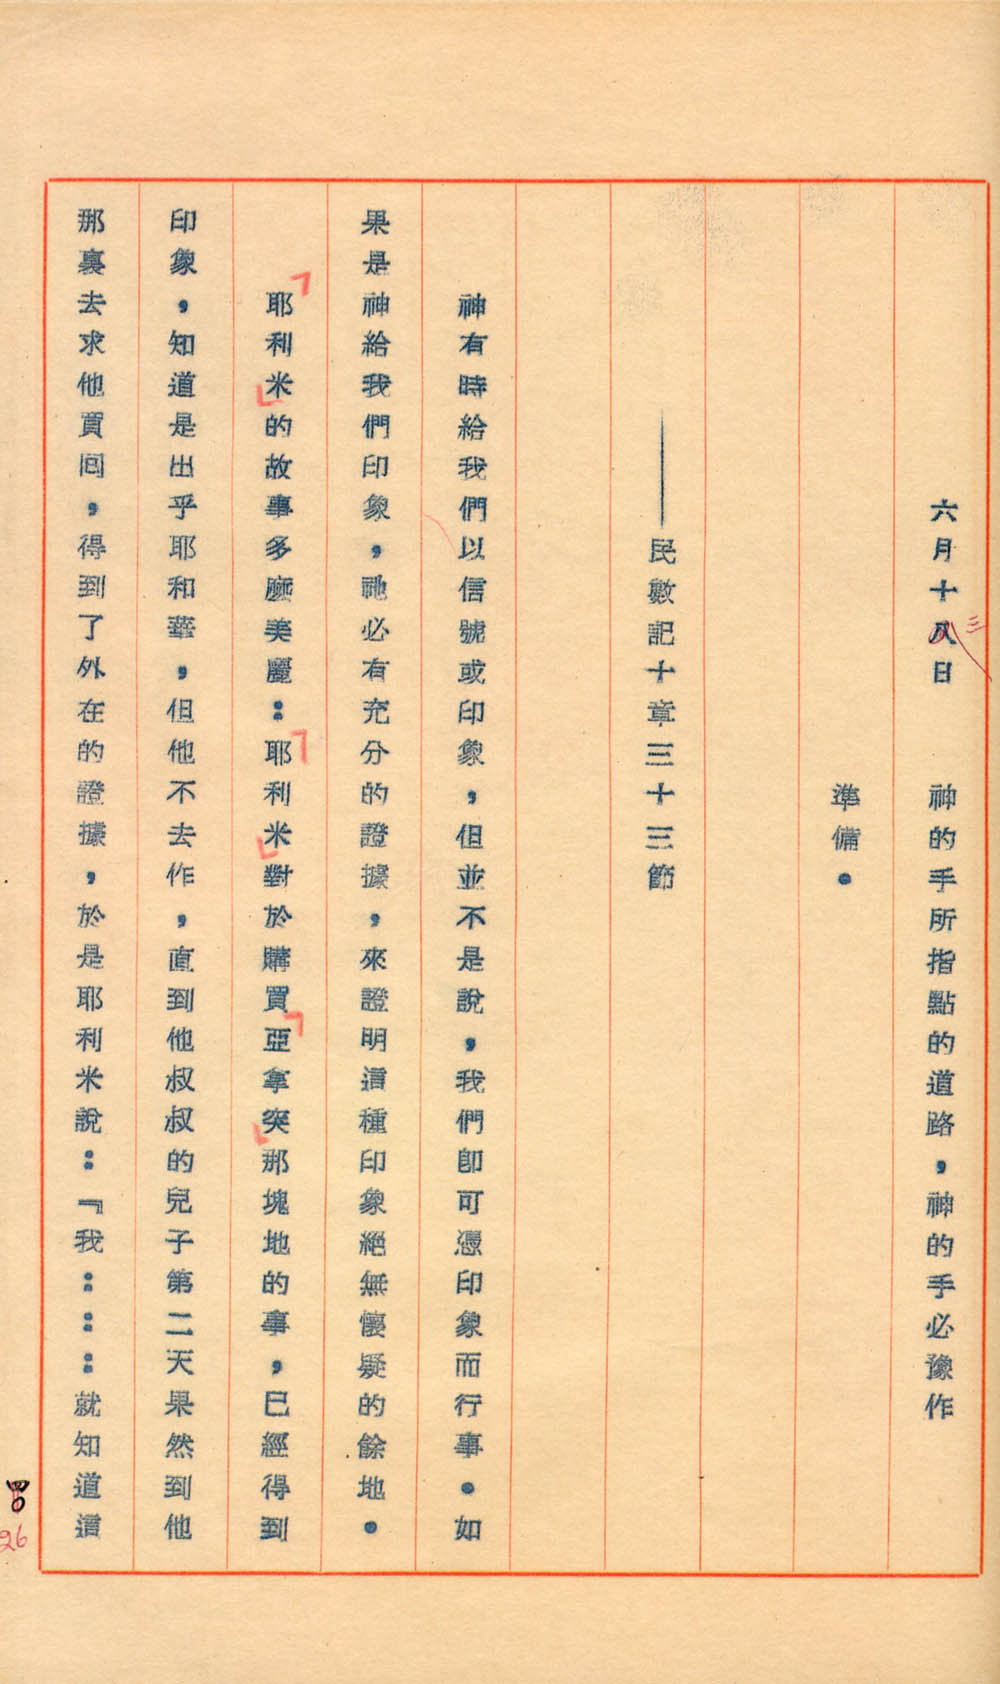 六月十八日　神的手所指點的道路，神的手必豫作
三
準備。
——民數記十章三十三節
神有時給我們以信號或印象，但並不是說，我們卽可憑印象而行事。如
果是神給我們印象，祂必有充分的證據，來證明這種印象絕無懷疑的餘地。
「耶利米」的故事多麽美麗：「耶利米」對於購買「亞拿突」那塊地的事，已經得到
印象，知道是出乎耶和華，但他不去作，直到他叔叔的兒子第二天果然到他
那裏去求他買囘，得到了外在的證據，於是耶利米說：『我………就知道這
26